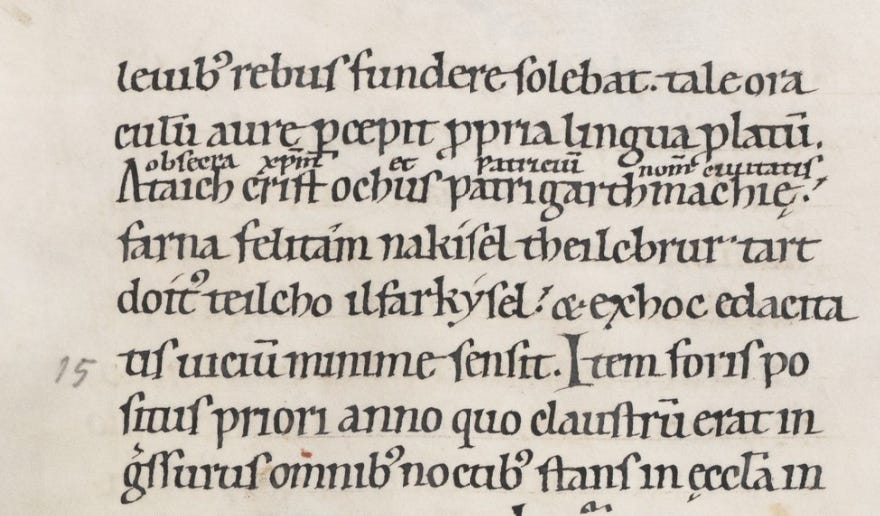 leuibꝰ rebus fundere solebat. tale ora
culū aurę ꝑcepit ꝓpria lingua ꝓlatū.
obsecra xp̄m et patriciū nom̄ ciuitatis
Ataich crist ochus patrig arthmachię.
farna felitáim nakísel theilcbrur tart
doitꝰ teilcho ilfarkẏsel. & exhoc edacita
15 tis uiciū minime sensit. Item foris po
situs priori anno quo claustrū erat in
gͥssurus omnibꝰ noctibꝰ stans in ęccl̄a in